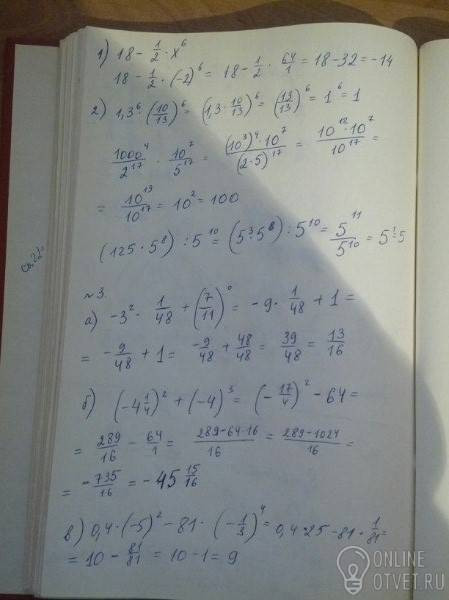 1) 18 - 1/2 · x^6
18 - 1/2 · (-2)^6 = 18 - 1/2 · 64/1 = 18 - 32 = -14
2) 1,3^6 · (10/13)^6 = (1,3 · 10/13)^6 = (13/13)^6 = 1^6 = 1
1000^4/2^17 · 10^7/5^17 = (10^3)^4 · 10^7/(2·5)^17 = 10^12 · 10^7/10^17 =
= 10^19/10^17 = 10^2 = 100
(125 · 5^8) : 5^10 = (5^3 · 5^8) : 5^10 = 5^11/5^10 = 5^1 = 5
№3
а) -3^2 · 1/48 + (7/11)^0 = -9 · 1/48 + 1 =
= -9/48 + 1 = -9/48 + 48/48 = 39/48 = 13/16
б) (-4 1/4)^2 + (-4)^3 = (-17/4)^2 - 64 =
= 289/16 - 64/1 = 289-64·16/16 = 289-1024/16 =
= -735/16 = -45 15/16
в) 0,4 · (-5)^2 - 81 · (-1/3)^4 = 0,4 · 25 - 81 · 1/81 =
= 10 - 81/81 = 10 - 1 = 9
ONLINE
OTVET.RU